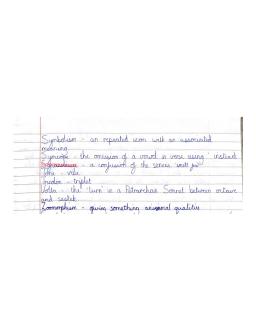 Symbolism - an repeated icon with an associated
meaning
Syncope - the omission of a vowel in verse using
- a confusion of the senses
Tone -
Tricolon - triplet
Volta - the 'turn' in a Petrarchan Sonnet between octave
and sestet
Zoomorphism - giving something animal qualities